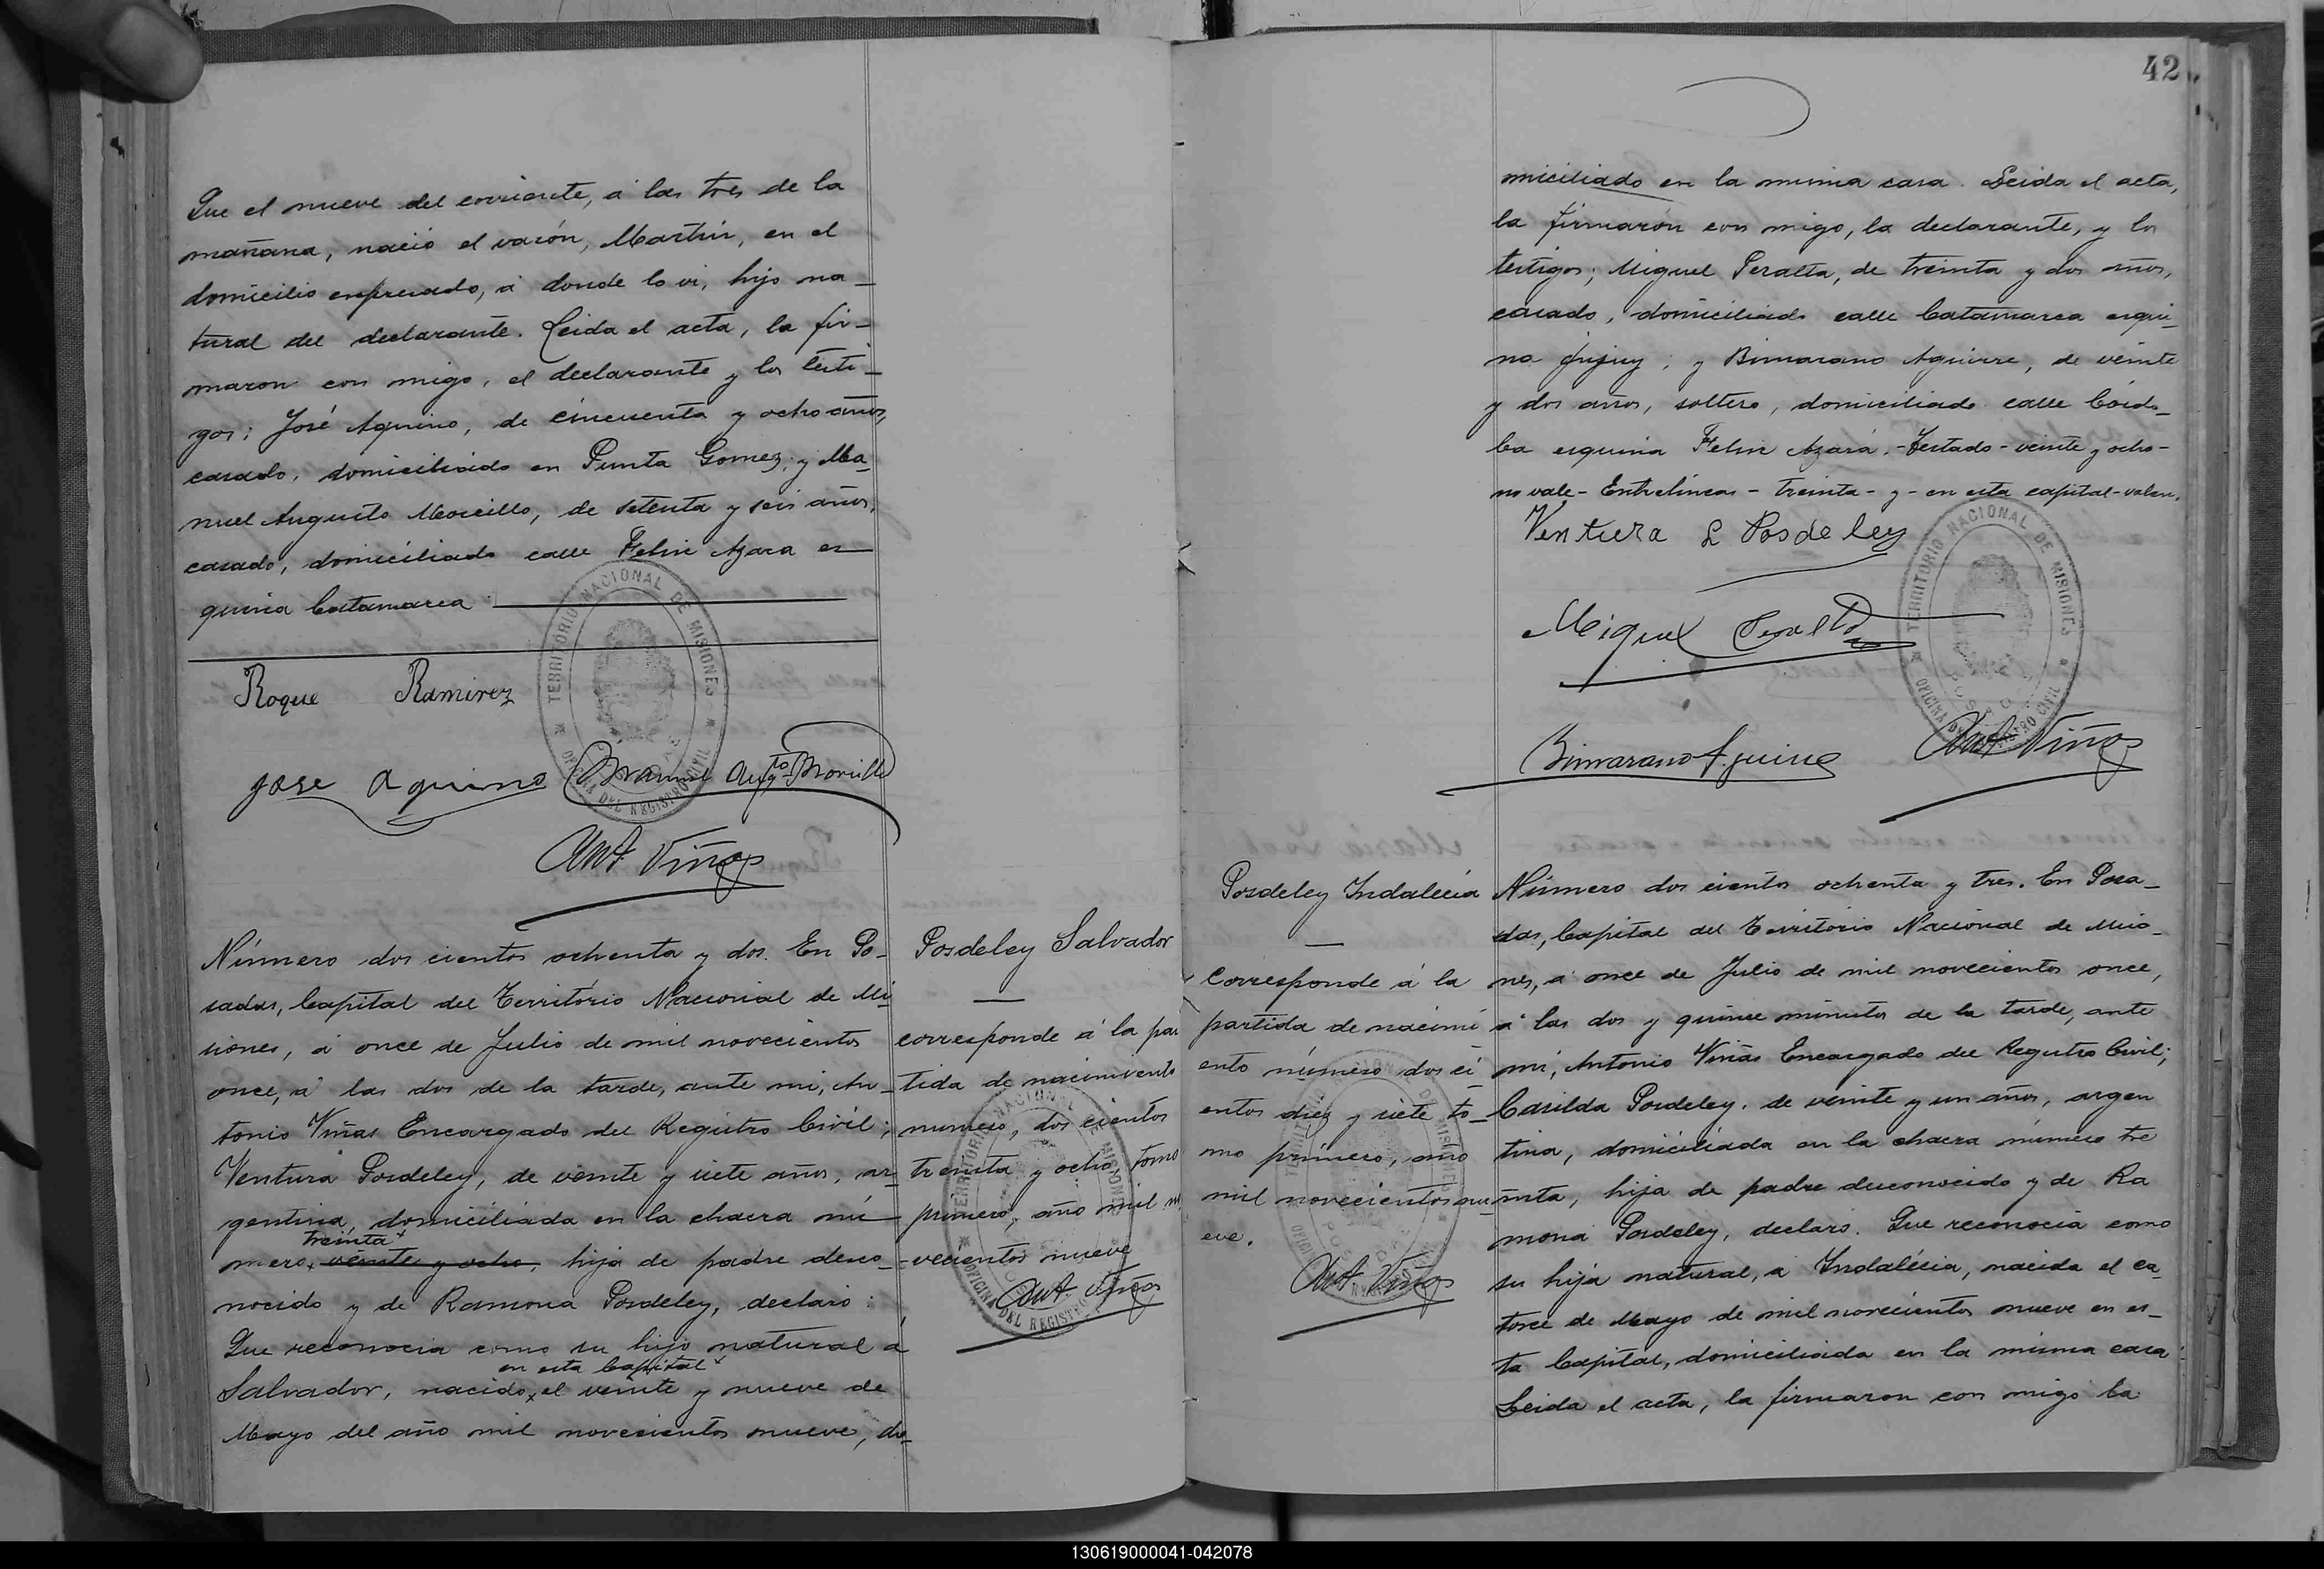 Que el nueve del corriente, á las tres de la
mañana, nació el varón, Martin, en el
domicilio expresado, á donde lo vi, hijo na-
tural del declarante. Leida el acta, la fir-
maron con migo, el declarante y los testi-
gos: José Aquino, de cincuenta y ocho años,
casado, domiciliado en Punta Gomez; y Ma-
nuel Augusto Morcillo, de setenta y seis años,
casado, domiciliado calle Felix Azara es-
quina Catamarca
Roque Ramirez
Jose Aquino Manuel Augto Morcillo
Ant Viñas
TERRITORIO NACIONAL DE MISIONES
OFICINA DEL REGISTRO CIVIL
Número dos cientos ochenta y dos. En Po-
sadas, Capital del Território Nacional de Mi-
siones, á once de Julio de mil novecientos
once, á las dos de la tarde, ante mi, An-
tonio Viñas Encargado del Registro Civil;
Ventura Posdeley, de veinte y siete años, ar-
gentina, domiciliada en la chacra nú-
treinta
mero, veinte y ocho, hija de padre desco-
nocido y de Ramona Posdeley, declaró:
Que reconocia como su hijo natural á
en esta Capital
Salvador, nacido, el veinte y nueve de
Mayo del año mil novecientos nueve, do-
Posdeley Salvador
corresponde á la par
tida de nacimiento
numero, dos cientos
treinta y ocho, tomo
primero, año mil no
vecientos nueve
Ant Viñas
TERRITORIO NACIONAL DE MISIONES
OFICINA DEL REGISTRO CIVIL
42
miciliado en la misma casa. Leida el acta,
la firmarón con migo, la declarante, y los
testigos; Miguel Peralta, de treinta y dos años,
casado, domiciliado calle Catamarca esqui-
na Jujuy; y Bimarano Aguirre, de veinte
y dos años, soltero, domiciliado calle Córdo-
ba esquina Felix Azara.-Testado-veinte y ocho-
no vale-Entrelineas-treinta-y-en esta capital-valen.
Ventura L Posdeley
Miguel Peralta
Bimarano Aguirre Ant Viñas
TERRITORIO NACIONAL DE MISIONES
OFICINA DEL REGISTRO CIVIL
Posdeley Indalécia
Corresponde á la
partida de nacimi
ento número dos ci-
entos diez y siete to-
mo primero, año
mil novecientos nu-
eve.
Ant. Viñas
Número dos cientos ochenta y tres. En Posa-
das, Capital del Território Nacional de Misio-
nes, á once de Julio de mil novecientos once,
á las dos y quince minutos de la tarde, ante
mi, Antonio Viñas Encargado del Registro Civil;
Casilda Posdeley, de veinte y un años, argen
tina, domiciliada en la chacra número tre
inta, hija de padre desconocido y de Ra
mona Posdeley, declaró. Que reconocia como
su hija natural, a Indalécia, nacida el ca-
torce de Mayo de mil novecientos nueve en es-
ta Capital, domiciliada en la misma casa.
Leida el acta, la firmaron con migo la
130619000041-042078